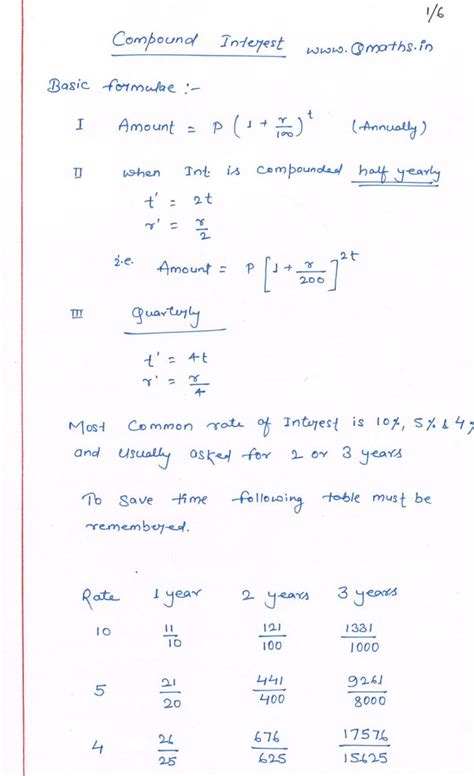 1/6
Compound Interest www.@maths.in
Basic formulae :-
I Amount = P (1 + r/100)^t (Annually)
II when Int. is compounded half yearly
t' = 2t
r' = r/2
i.e. Amount = P [1 + r/200]^2t
III Quarterly
t' = 4t
r' = r/4
Most Common rate of Interest is 10%, 5% & 4%
and usually asked for 2 or 3 years
To save time following table must be
remembered.
Rate 1 year 2 years 3 years
10 11/10 121/100 1331/1000
5 21/20 441/400 9261/8000
4 26/25 676/625 17576/15625